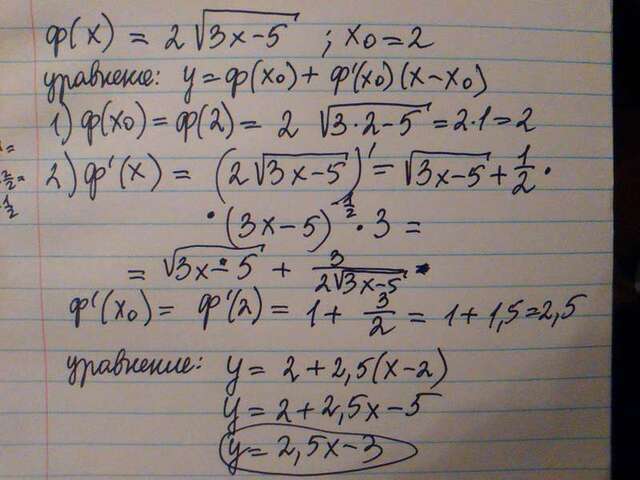 ф(x) = 2√(3x-5) ; x₀=2
уравнение: y=ф(x₀)+ф'(x₀)(x-x₀)
1) ф(x₀)=ф(2)= 2 √(3·2-5)=2·1=2
2) ф'(x) = (2√(3x-5))' = √(3x-5) + 1/2 ·
· (3x-5)^(-1/2) · 3 =
= √(3x-5) + 3/(2√(3x-5))
ф'(x₀)= ф'(2)= 1+ 3/2 = 1+1,5=2,5
уравнение: y= 2+2,5(x-2)
y=2+2,5x-5
y=2,5x-3